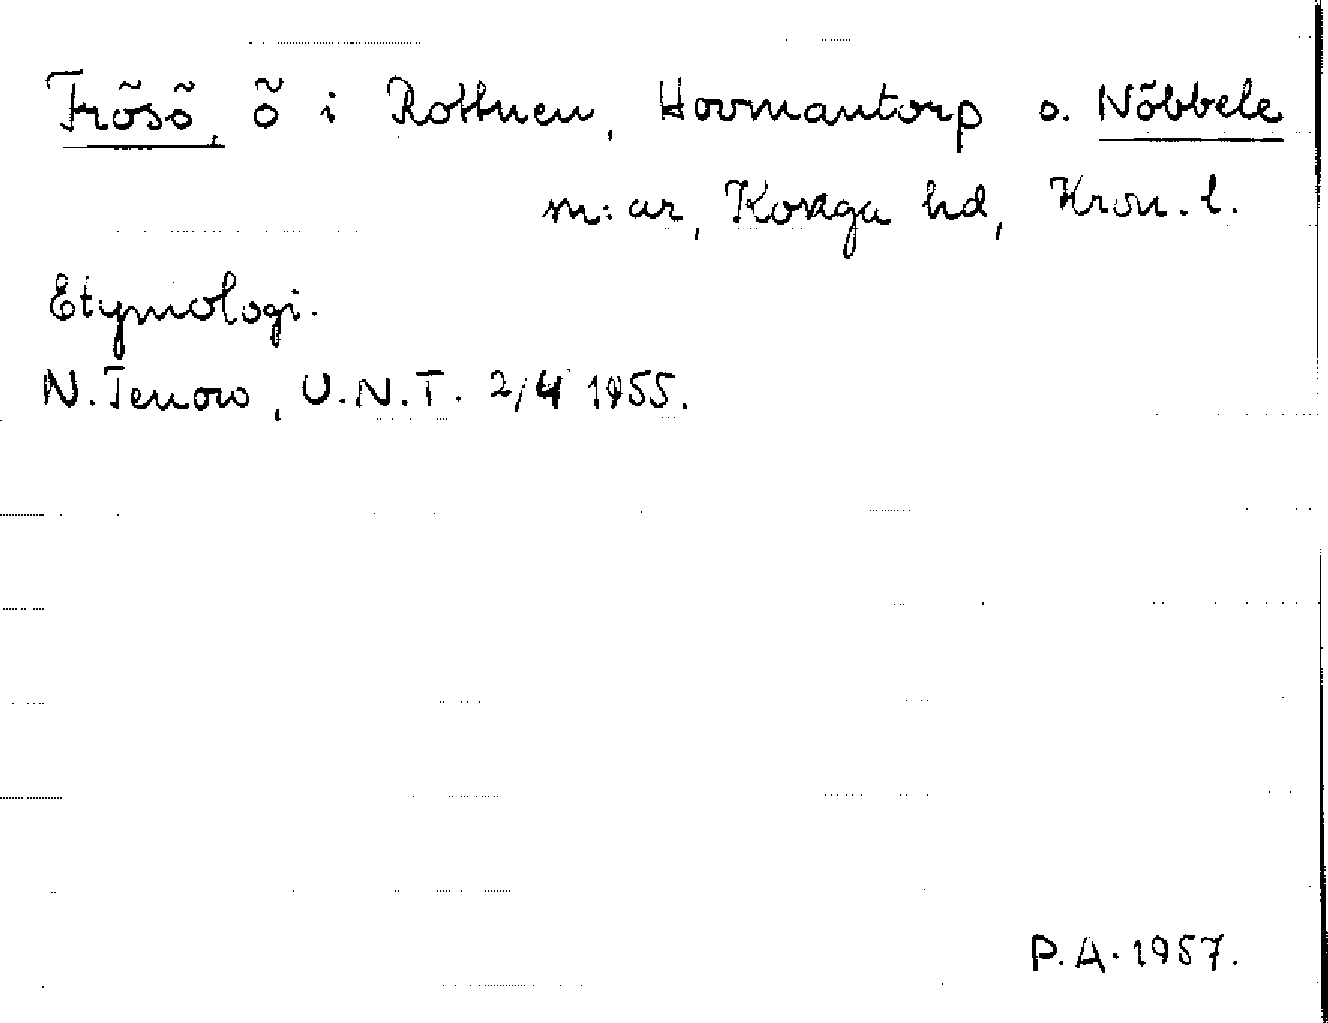 Frösö, ö i Rottnen, Hovmantorp o. Nöbbele
m:ar, Konga hd, Kron. l.
Etymologi.
N. Tenow, U.N.T. 2/4 1955.
P.A. 1957.